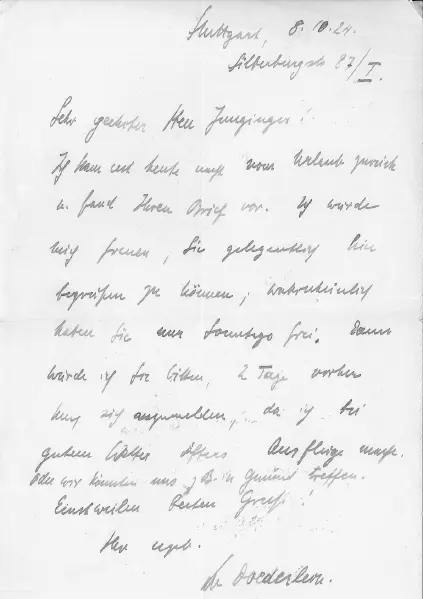 Stuttgart, 8.10.24.
Silberburgstr 87/I.
Sehr geehrter Herr Junginger!
Ich kam erst heute nach vom Urlaub zurück
u. fand Ihren Brief vor. Ich würde
mich freuen, Sie gelegentlich hier
begrüßen zu können; wahrscheinlich
haben Sie nur Sonntags frei. Dann
würde ich Sie bitten, 2 Tage vorher
sich anzumelden, da ich bei
gutem Wetter öfters Ausflüge mache.
Oder wir könnten uns z B in Gmünd treffen.
Einstweilen besten Gruß!
Ihr ergeb.
Dr Doederlein.